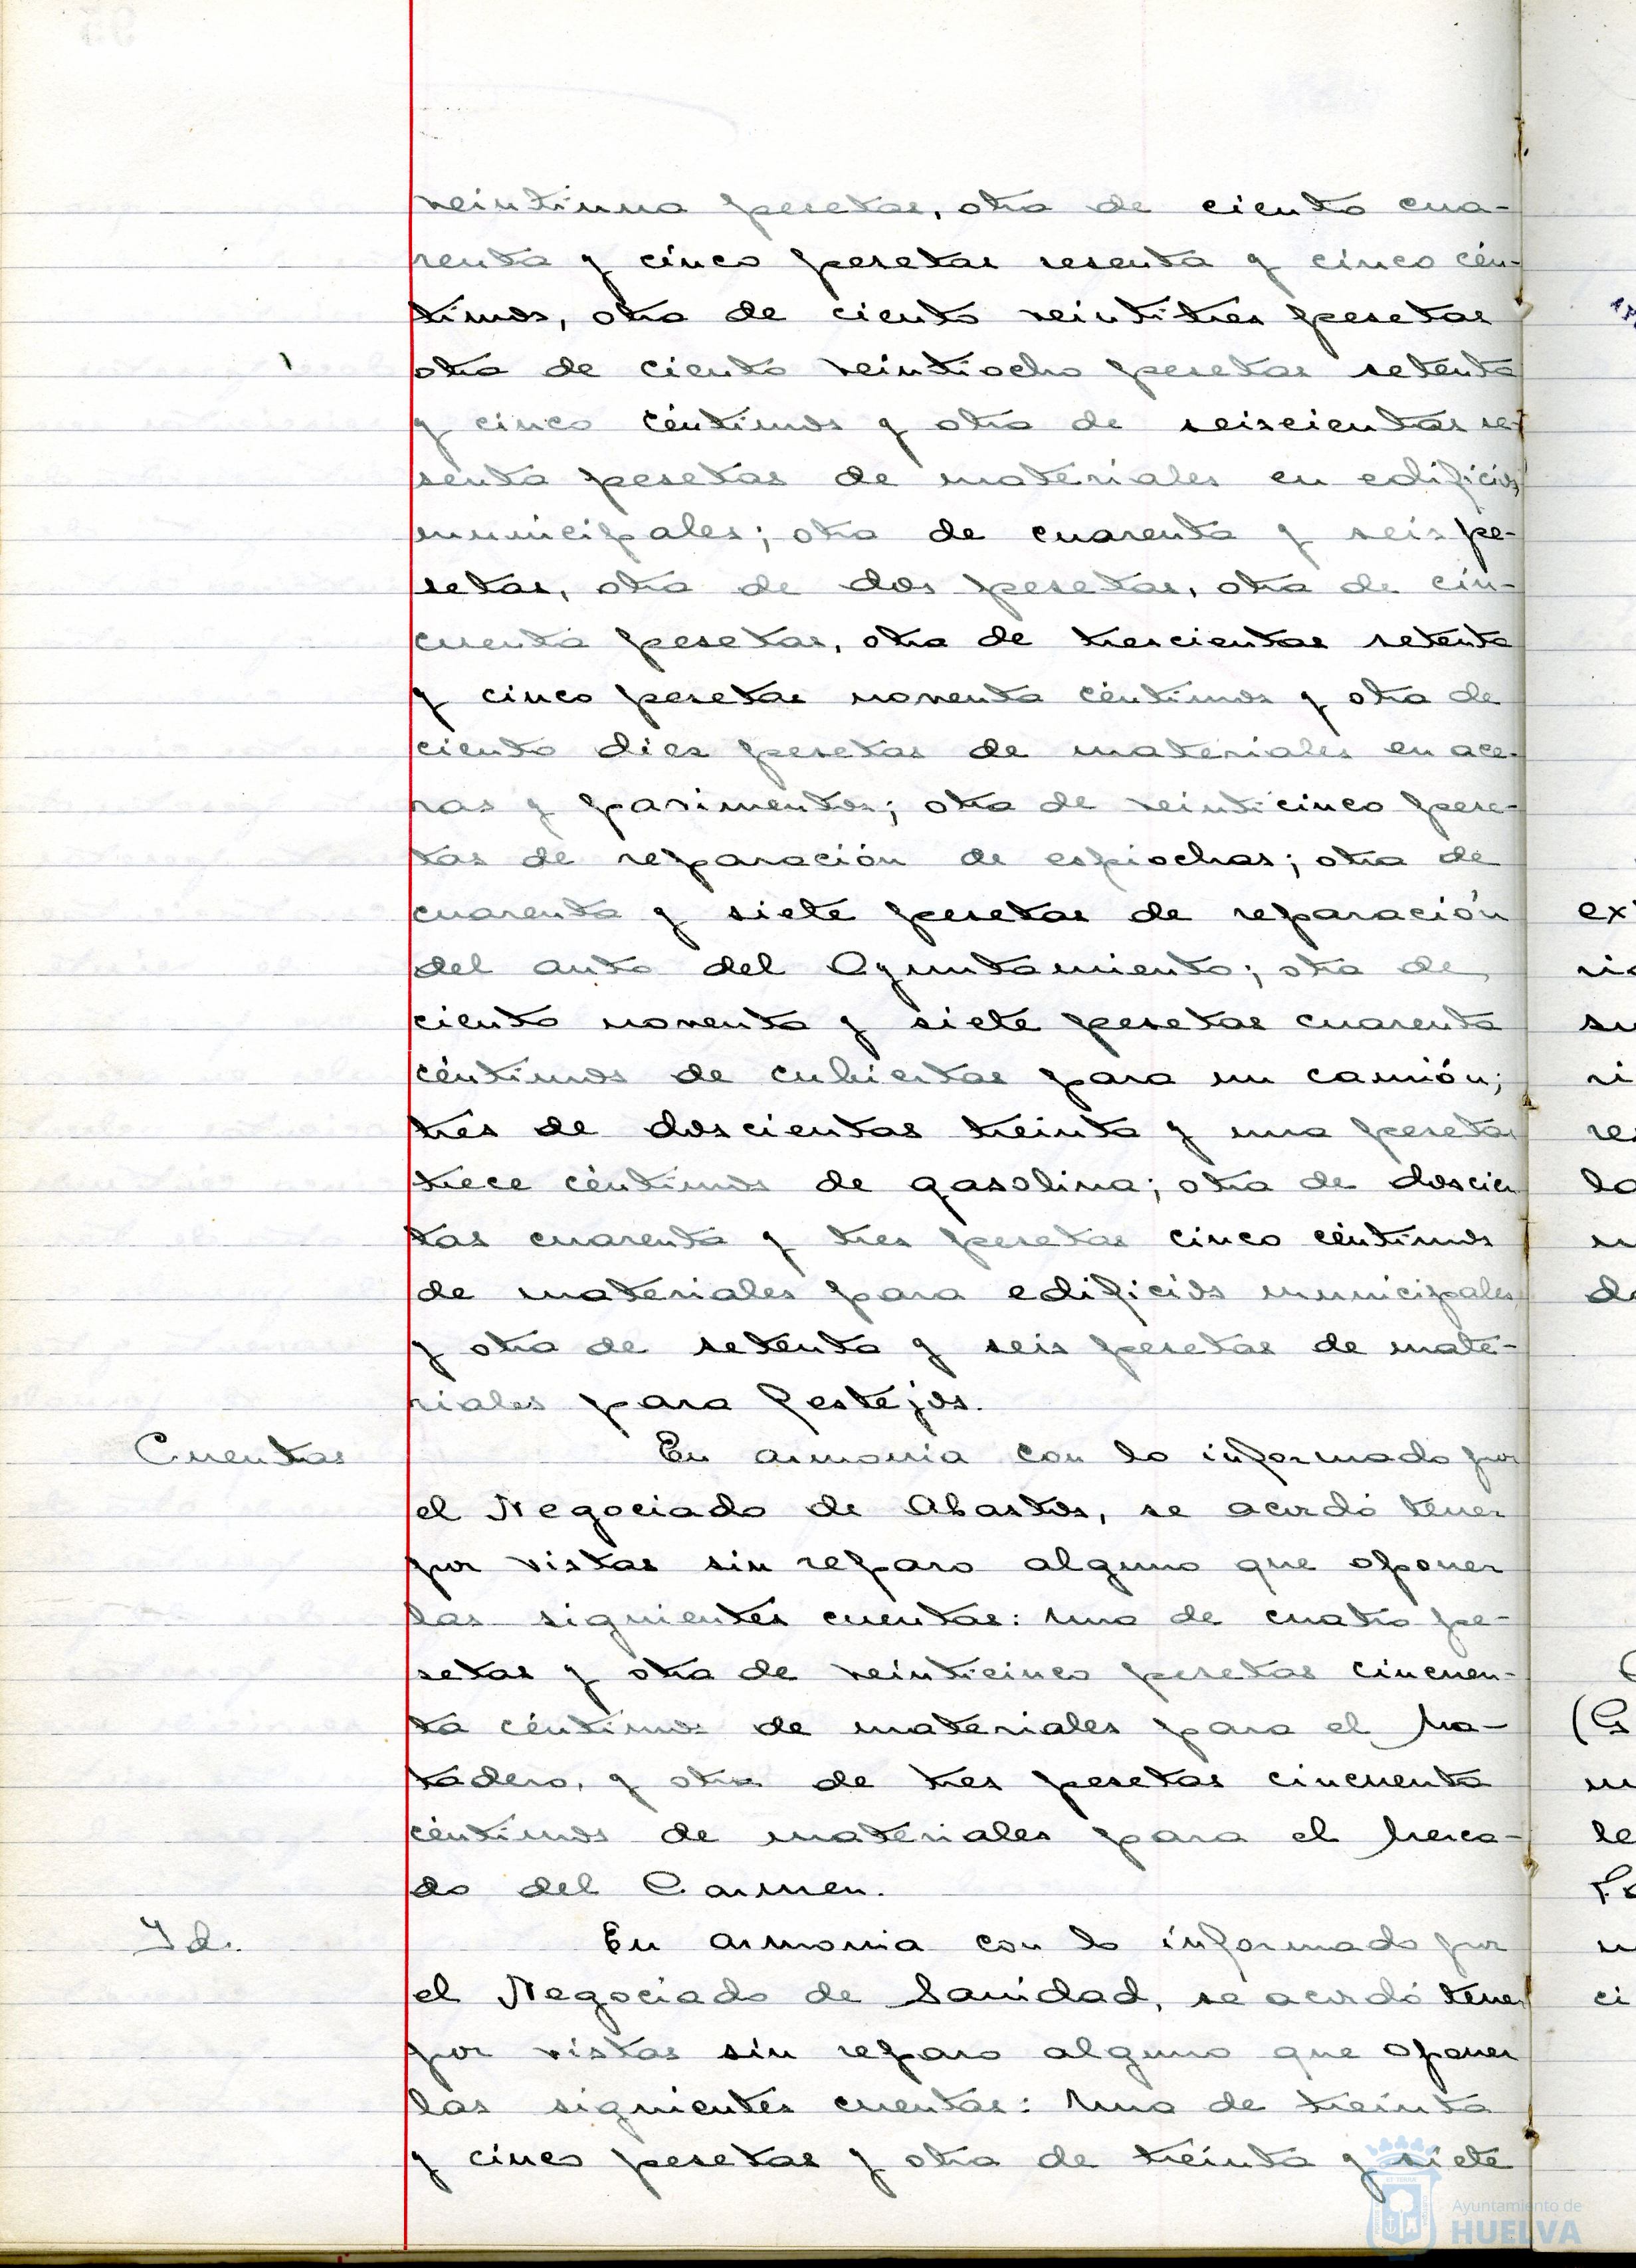 veintiuna pesetas, otra de ciento cua-
renta y cinco pesetas sesenta y cinco cén-
timos, otra de ciento veintitres pesetas
otra de ciento veintiocho pesetas setenta
y cinco céntimos y otra de seiscientas se-
senta pesetas de materiales en edificios
municipales; otra de cuarenta y seis pe-
setas, otra de dos pesetas, otra de cin-
cuenta pesetas, otra de trescientas setenta
y cinco pesetas noventa céntimos y otra de
ciento diez pesetas de materiales en ace-
ras y pavimentos; otra de veinticinco pese-
tas de reparación de espiochas; otra de
cuarenta y siete pesetas de reparación
del auto del Ayuntamiento; otra de
ciento noventa y siete pesetas cuarenta
céntimos de cubiertas para un camión;
tres de doscientas treinta y una pesetas
trece céntimos de gasolina; otra de doscien
tas cuarenta y tres pesetas cinco céntimos
de materiales para edificios municipales
y otra de setenta y seis pesetas de mate-
riales para Festejos.
Cuentas
En armonia con lo informado por
el Negociado de Abastos, se acordó tener
por vistas sin reparo alguno que oponer
las siguientes cuentas: Una de cuatro pe-
setas y otra de veinticinco pesetas cincuen-
ta céntimos de materiales para el Ma-
tadero, y otra de tres pesetas cincuenta
céntimos de materiales para el Merca-
do del Carmen.
Id.
En armonia con lo informado por
el Negociado de Sanidad, se acordó tener
por vistas sin reparo alguno que oponer
las siguientes cuentas: Una de treinta
y cinco pesetas y otra de treinta y siete
Ayuntamiento de
HUELVA